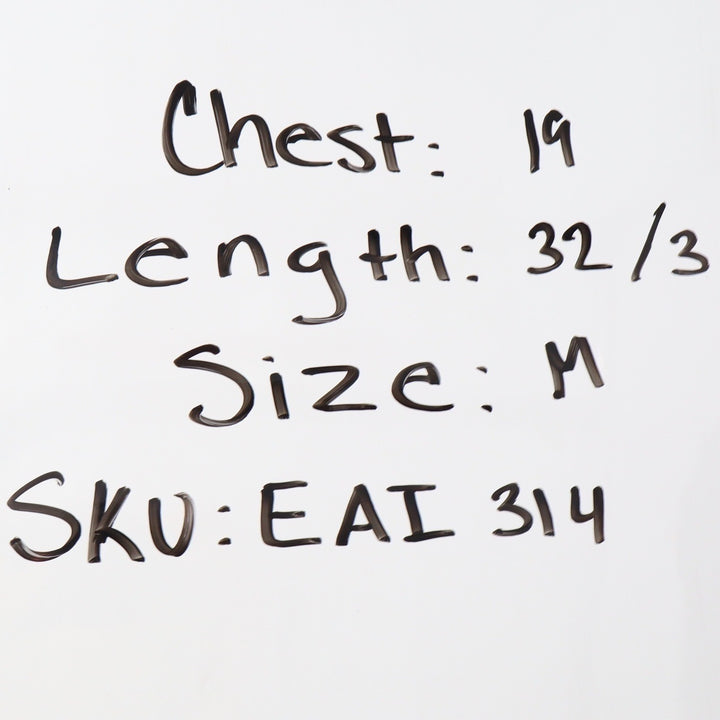 Chest: 19
Length: 32/3
Size: M
SKU: EAI 314